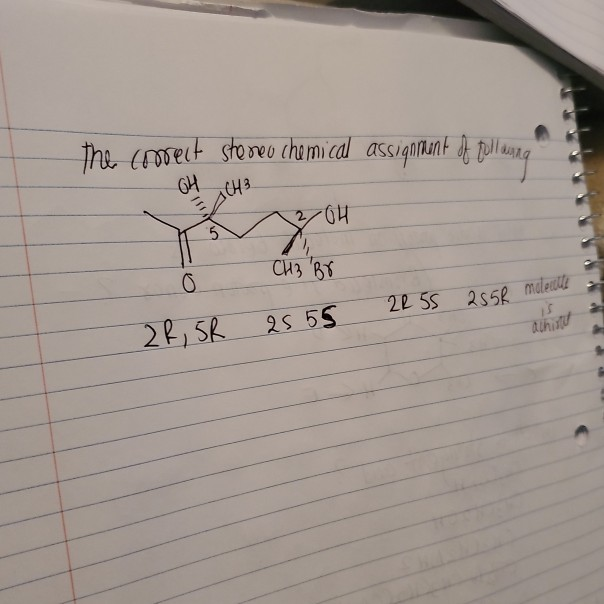 The correct stereochemical assignment of following
OH CH3
5 2 OH
O CH3 Br
2R, 5R 2S 5S 2R 5S 2S5R molecule
is
achiral